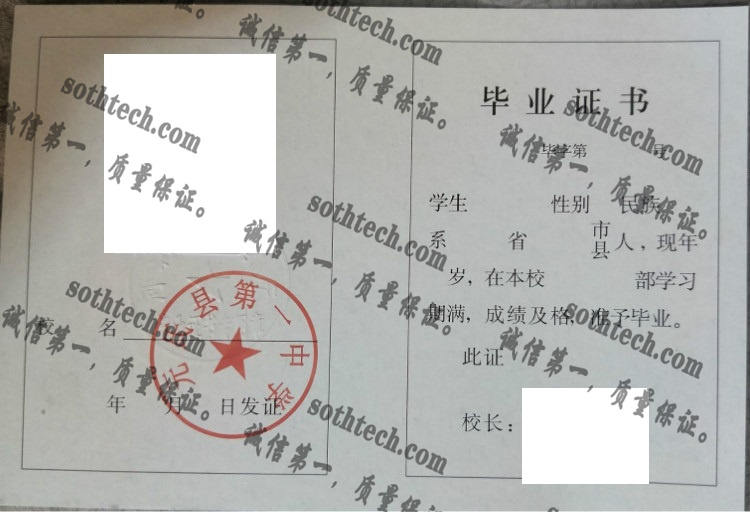 校 名
年 月 日发证
县第一中学
毕业证书
毕字第 号
学生 性别 民族
系 省 市县 人，现年
岁，在本校 部学习
期满，成绩及格，准予毕业。
此证
校长：
sothtech.com
诚信第一，质量保证。
sothtech.com
诚信第一，质量保证。
sothtech.com
诚信第一，质量保证。
sothtech.com
诚信第一，质量保证。
sothtech.com
诚信第一，质量保证。
sothtech.com
诚信第一，质量保证。
sothtech.com
诚信第一，质量保证。
sothtech.com